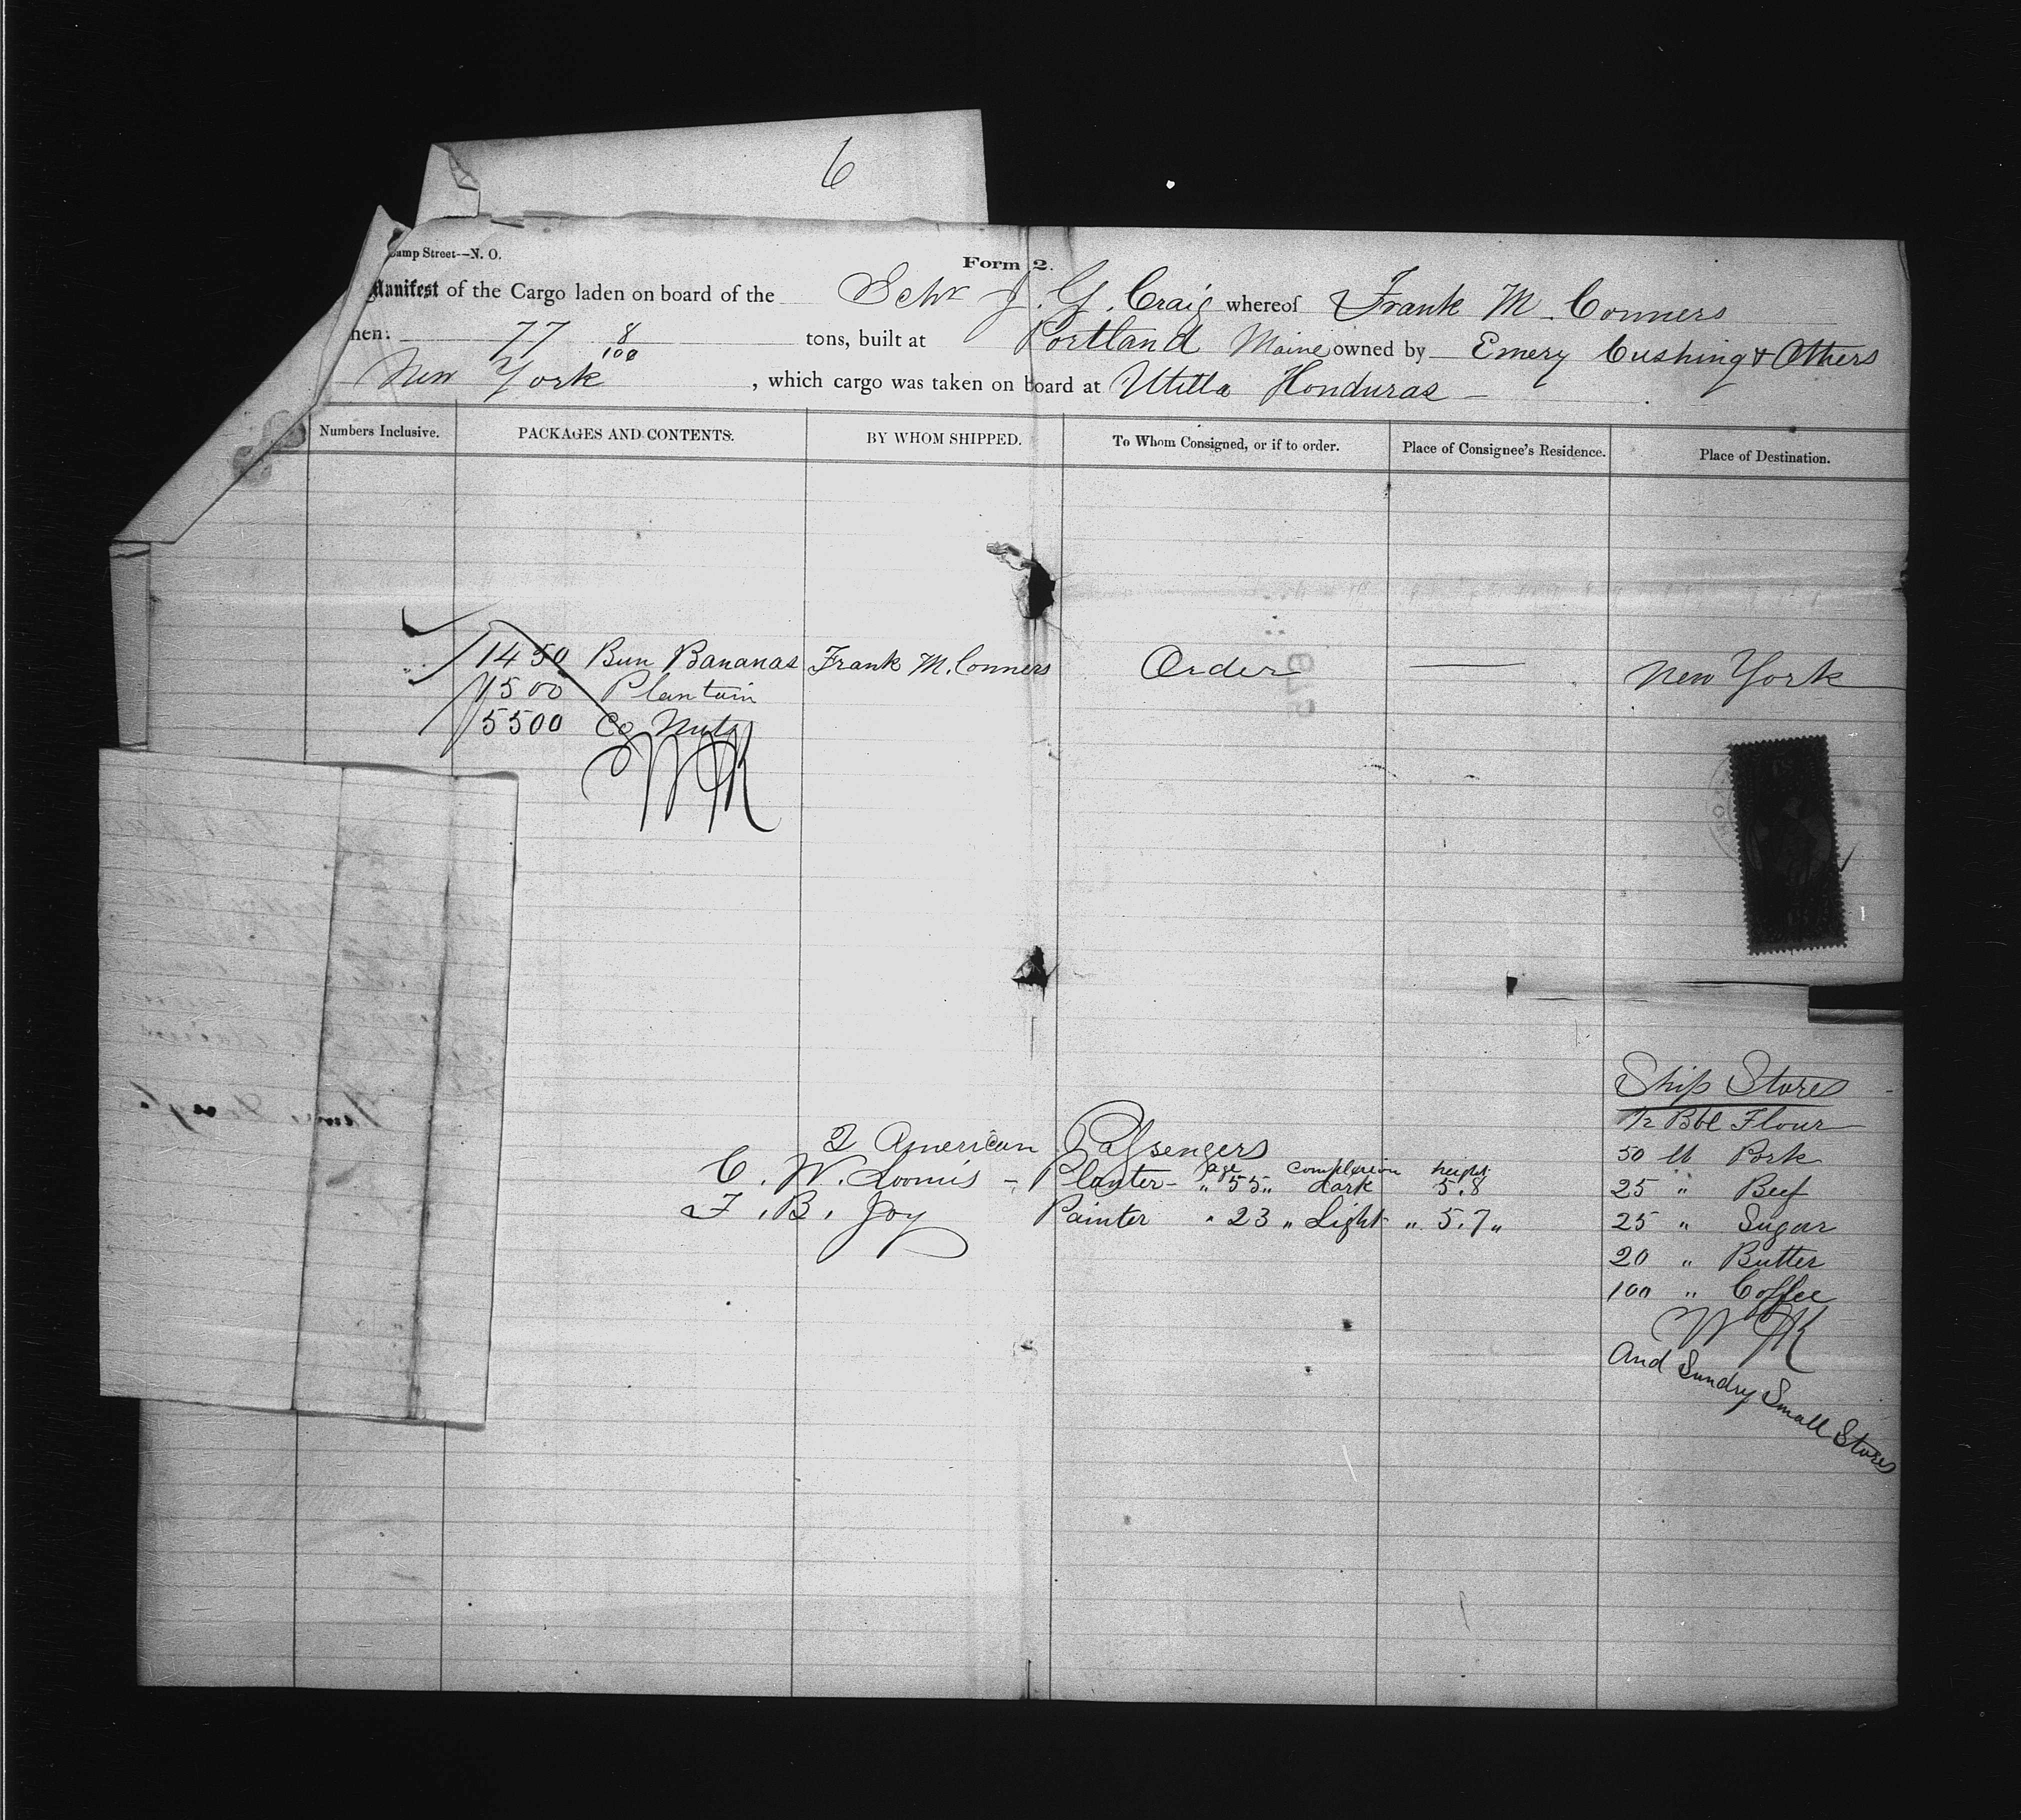 6
Camp Street--N. O.
Form 2.
Manifest of the Cargo laden on board of the Schr J. G. Craig whereof Frank M. Conners
hen: 77 8/100 tons, built at Portland Maine owned by Emery Cushing & Others
New York , which cargo was taken on board at Utilla Honduras
Numbers Inclusive. PACKAGES AND CONTENTS. BY WHOM SHIPPED. To Whom Consigned, or if to order. Place of Consignee's Residence. Place of Destination.
1450 Bun Bananas Frank M. Conners Order New York
1500 Plantain
5500 Co Nuts
Ship Stores
1/2 Bbl Flour
50 lb Pork
25 " Beef
25 " Sugar
20 " Butter
100 " Coffee
And Sundry Small Stores
2 American Passengers
age complexion height
C. W. Loomis - Planter - " 55 " dark 5.8
F. B. Joy Painter " 23 " Light " 5.7 "